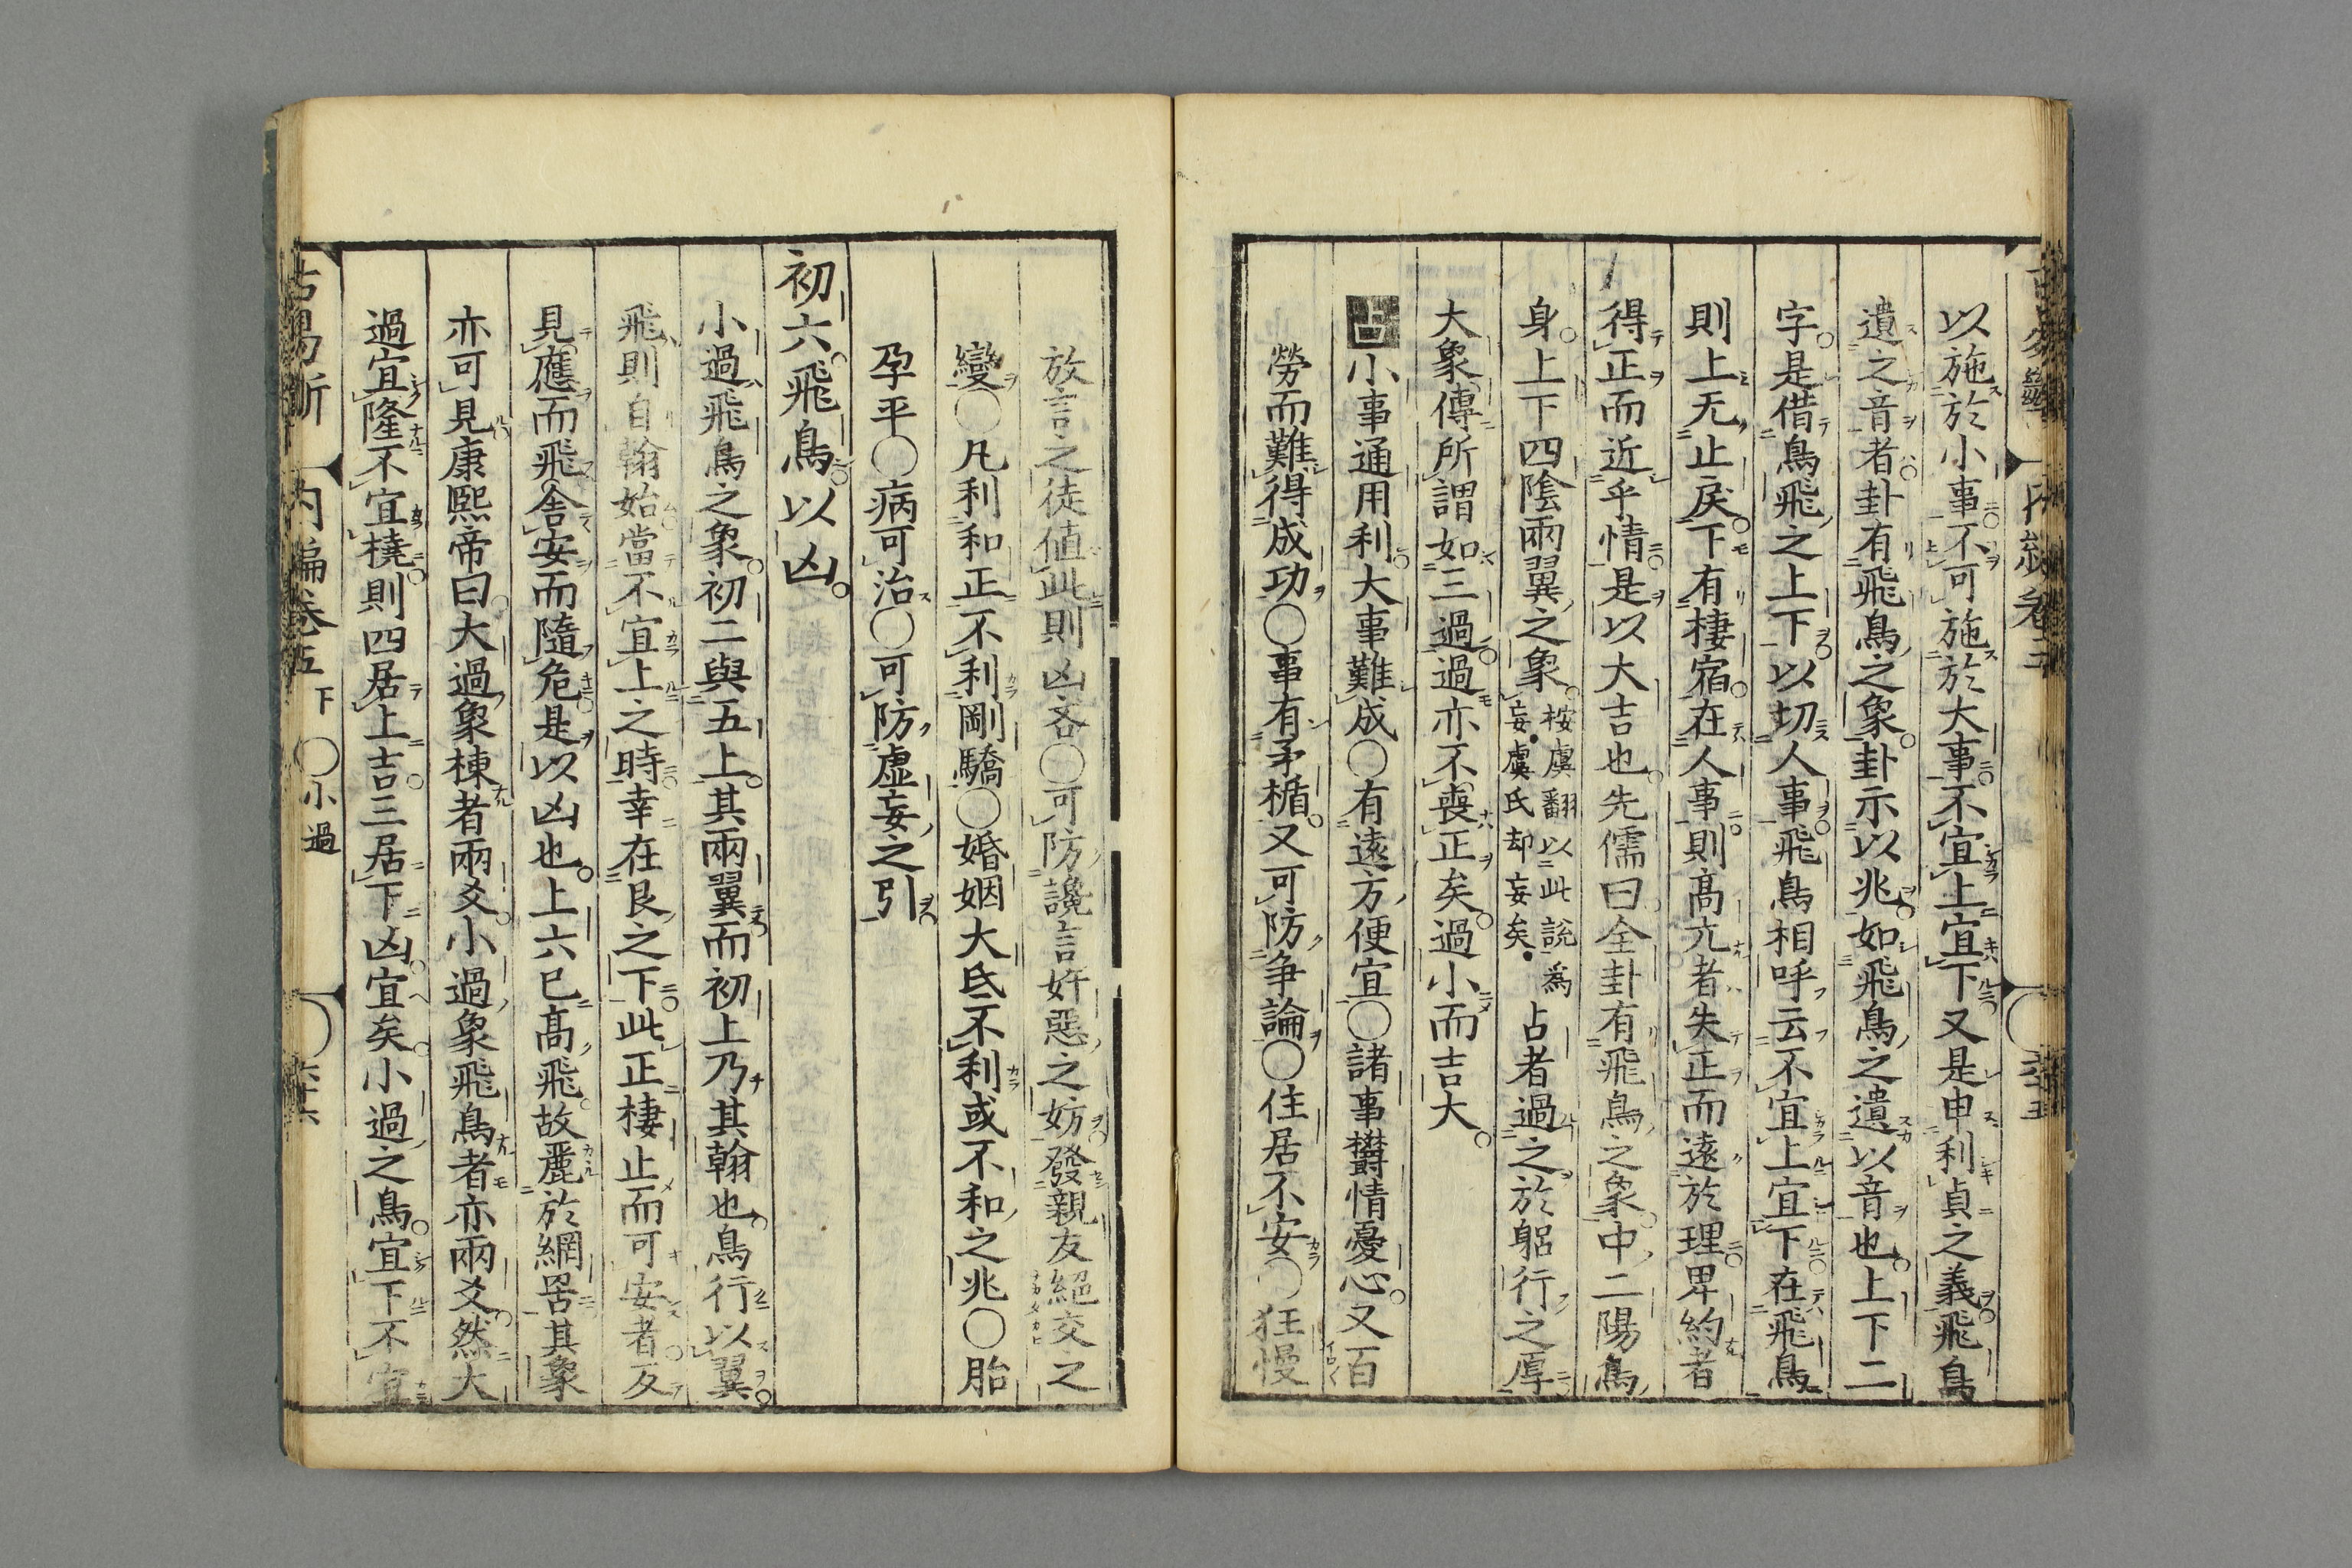 以施於小事不可施於大事不宜上宜下又是申利貞之義飛鳥
遺之音者卦有飛鳥之象卦示以兆如飛鳥之遺以音也上下二
字是借鳥飛之上下以切人事飛鳥相呼云不宜上宜下在飛鳥
則上无止戻下有棲宿在人事則高亢者失正而遠於理卑約者
得正而近乎情是以大吉也先儒曰全卦有飛鳥之象中二陽鳥
身上下四陰兩翼之象
桉虞翻以此說為
妄虞氏却妄矣
占者過之於躬行之厚
大象傳所謂如三過過亦不喪正矣過小而吉大
占小事通用利大事難成○有遠方便宜○諸事欝情憂心又百
勞而難得成功○事有矛楯又可防爭論○住居不安○狂慢
放言之徒値此則凶吝○可防讒言奸惡之妨發親友絕交之
變○凡利和正不利剛驕○婚姻大氐不利或不和之兆○胎
孕平○病可治○可防虛妄之引
初六飛鳥以凶
小過飛鳥之象初二與五上其兩翼而初上乃其翰也鳥行以翼
飛則自翰始當不宜上之時幸在艮之下此正棲止而可安者反
見應而飛舍安而隨危是以凶也上六已高飛故麗於網罟其象
亦可見康熙帝曰大過象棟者兩爻小過象飛鳥者亦兩爻然大
過宜隆不宜橈則四居上吉三居下凶宜矣小過之鳥宜下不宜
古易斷 內編卷五下 ○小過